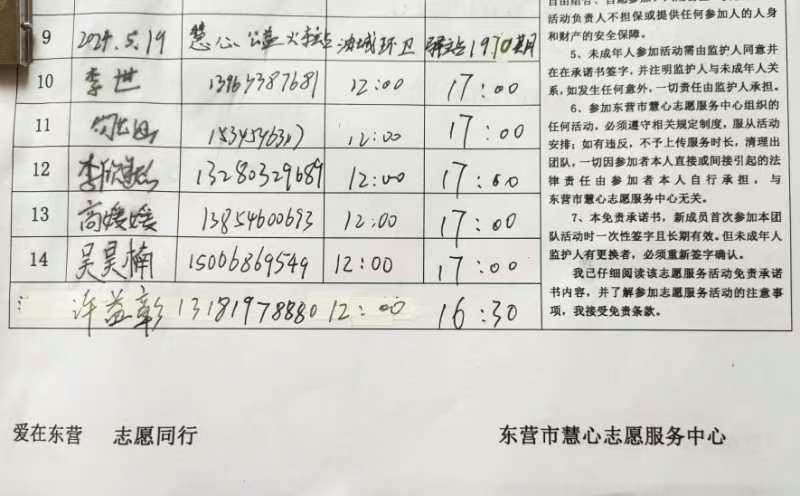 9 2024.5.19 慧心公益火
10 李世 13964387681 12:00 17:00
11 12:00 17:00
12 李欣 13280329689 12:00 17:00
13 高媛媛 13854600693 12:00 17:00
14 吴昊楠 15006869549 12:00 17:00
许益彰 13181978880 12:00 16:30
活动负责人不担保或提供任何参加人的人身
和财产的安全保障。
5、未成年人参加活动需由监护人同意并
在在承诺书签字，并注明监护人与未成年人关
系，如发生任何意外，一切责任由监护人承担。
6、参加东营市慧心志愿服务中心组织的
任何活动，必须遵守相关规定制度，服从活动
安排；如有违反，不予上传服务时长，清理出
团队，一切因参加者本人直接或间接引起的法
律责任由参加者本人自行承担，与
东营市慧心志愿服务中心无关。
7、本免责承诺书，新成员首次参加本团
队活动时一次性签字且长期有效。但未成年人
监护人有更换者，必须重新签字确认。
我已仔细阅读该志愿服务活动免责承诺
书内容，并了解参加志愿服务活动的注意事
项，我接受免责条款。
爱在东营 志愿同行
东营市慧心志愿服务中心